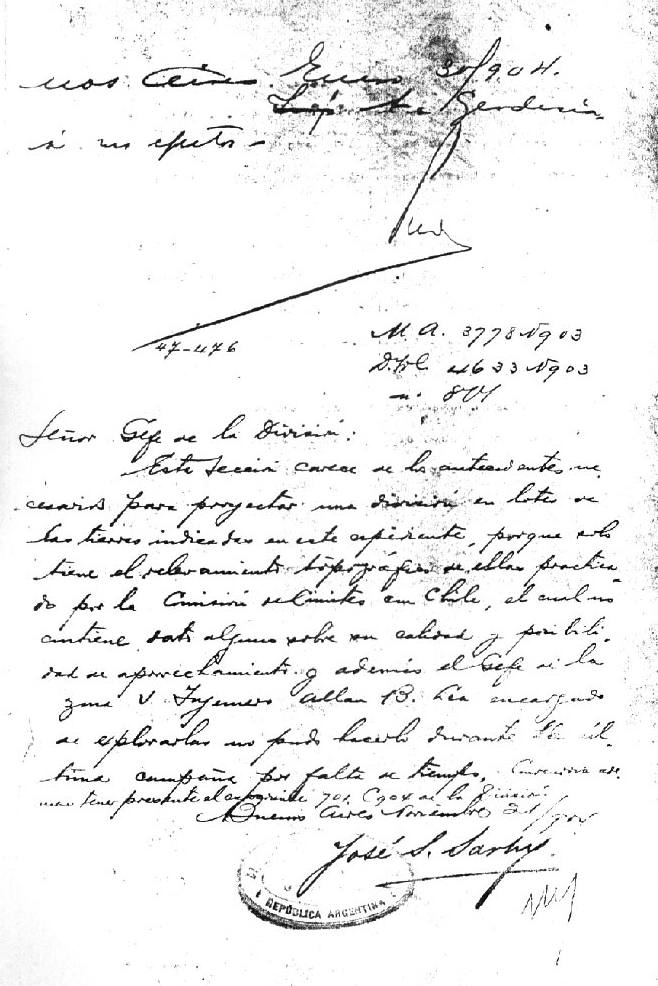 nos Aires Enero 30/904.
Geodesia
á sus efectos -
47-476
M. A. 3778 N 903
4633 N 903
Señor Gefe de la División:
Esta Sección carece de los antecedentes ne
cesarios para proyectar una división en lotes de
las tierras indicadas en este espediente, porque solo
tiene el relevamiento topográfico de ellas practica
do por la Comisión de límites con Chile, el cual no
contiene dato alguno sobre su calidad y posibili-
dad de aprovechamiento y además el Gefe de la
zona V Ingeniero Allan B. encargado
de explorarlas no pudo hacerlo durante la úl-
tima campaña por falta de tiempo. Convendria ade
mas tener presente el espediente 701 C 904 de la División
Buenos Aires Noviembre
José S. Sarhy
REPÚBLICA ARGENTINA